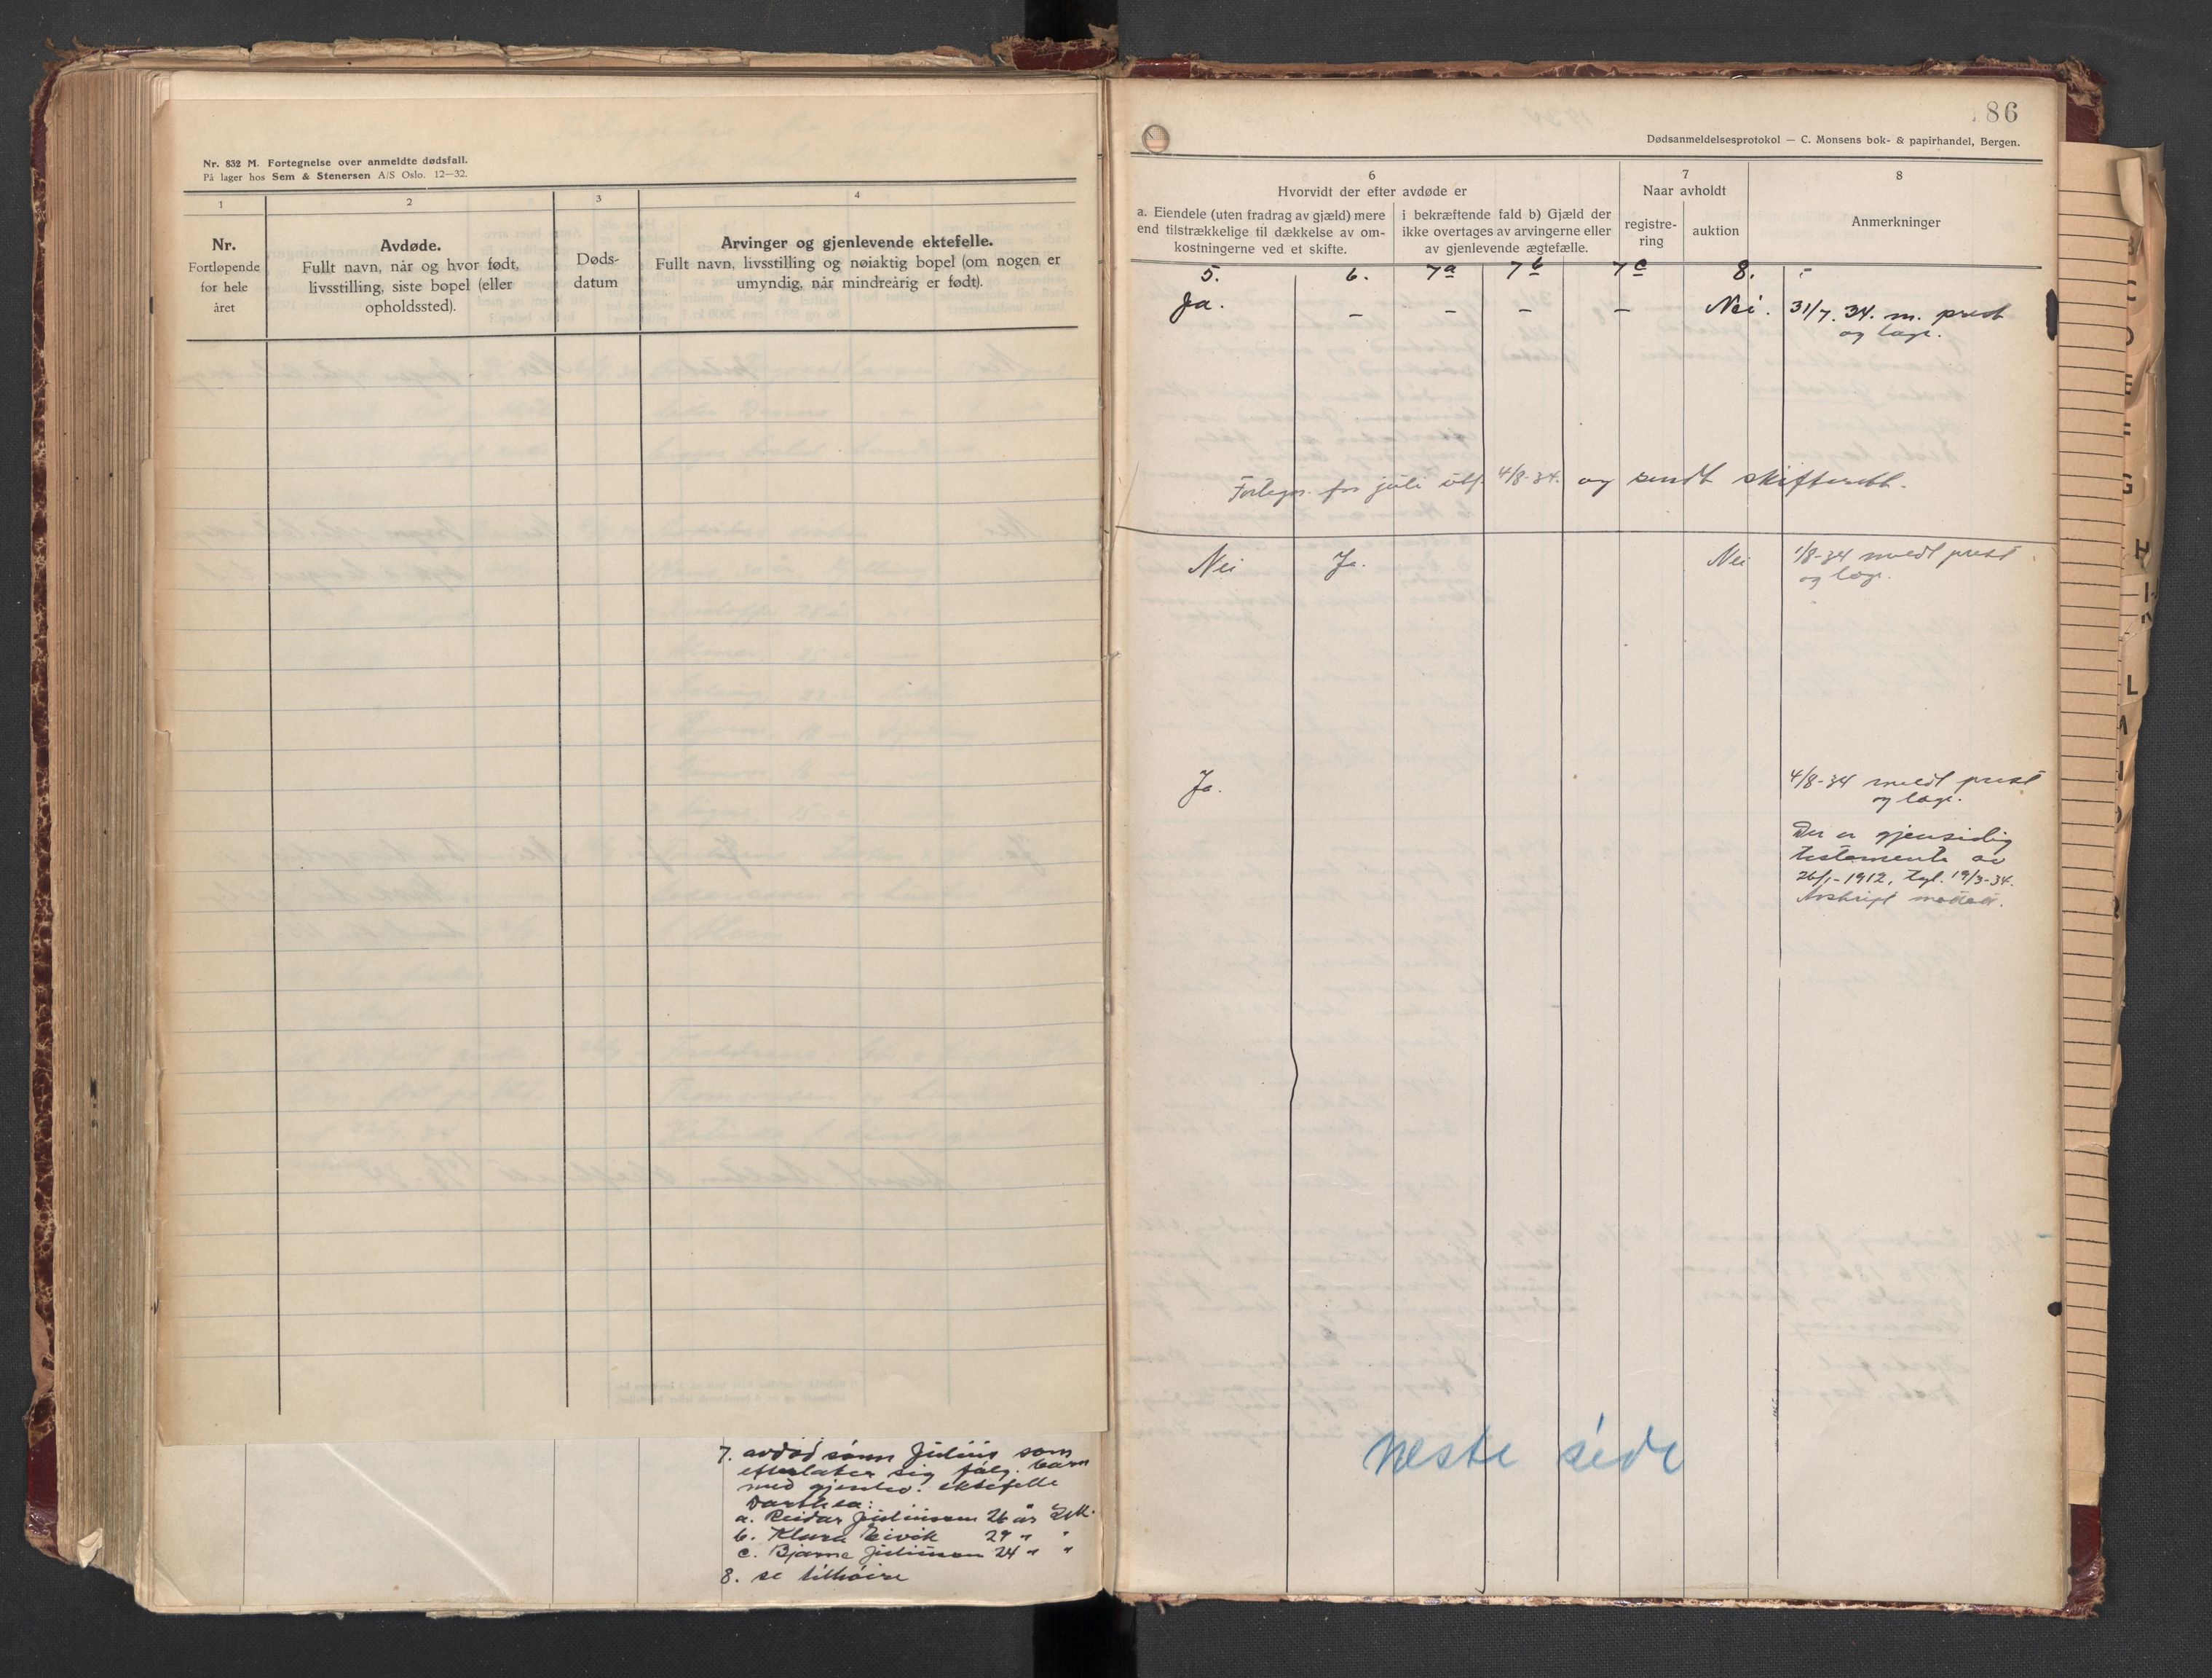 Nr. 832 M. Fortegnelse over anmeldte dødsfall.
På lager hos Sem & Stenersen A/S Oslo. 12—32.
1
2
3
4
Nr.
Fortløpende
for hele
året
Avdøde.
Fullt navn, når og hvor født,
livsstilling, siste bopel (eller
opholdssted).
Døds-
datum
Arvinger og gjenlevende ektefelle.
Fullt navn, livsstilling og nøiaktig bopel (om nogen er
umyndig, når mindreårig er født).
7. avdød sønn Julius som
efterlater sig følg. barn
med gjenlev. ektefelle
a. Reidar Juliussen 26 år
b. Klara 29 " "
c. Bjarne Juliussen 24 " "
8. se tilhøire
86
Dødsanmeldelsesprotokol — C. Monsens bok- & papirhandel, Bergen.
6
Hvorvidt der efter avdøde er
a. Eiendele (uten fradrag av gjæld) mere
end tilstrækkelige til dækkelse av om-
kostningerne ved et skifte.
i bekræftende fald b) Gjæld der
ikke overtages av arvingerne eller
av gjenlevende ægtefælle.
7
Naar avholdt
registre-
ring
auktion
8
Anmerkninger
5. 6. 7a 7b 7c 8.
Ja. — — — — Nei. 31/7. 34. m. prest
og læge.
Fortegn. for juli utf. 4/8-34. og sendt skifterett.
Nei Ja. Nei 1/8-34 meldt prest
og læge.
Ja. 4/8-34 meldt prest
og læge.
Der er gjensidig
testamente av
26/1-1912, tgl. 19/3-34.
Avskrift mottatt.
Næste side